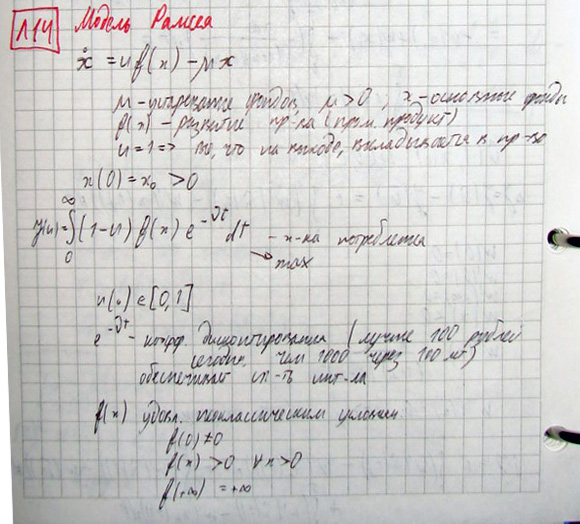 Л14 Модель Рамсея
ẋ = u f(x) − μx
μ – устаревание фондов, μ > 0, x – основные фонды
f(x) – развитие пр-ва (пром. продукт)
u = 1 => то, что на выходе, вкладывается в пр-во
x(0) = x₀ > 0
J(u) = ∫₀^∞ (1−u) f(x) e^{−νt} dt – х-ка потребления
→ max
u(·) ∈ [0,1]
e^{−νt} – коэфф. дисконтирования (лучше 100 рублей
сегодня, чем 1000 через 100 лет)
обеспечивает сх-ть инт-ла
f(x) удовл. неоклассическим условиям
f(0) ≠ 0
f(x) > 0 ∀x > 0
f(+∞) = +∞